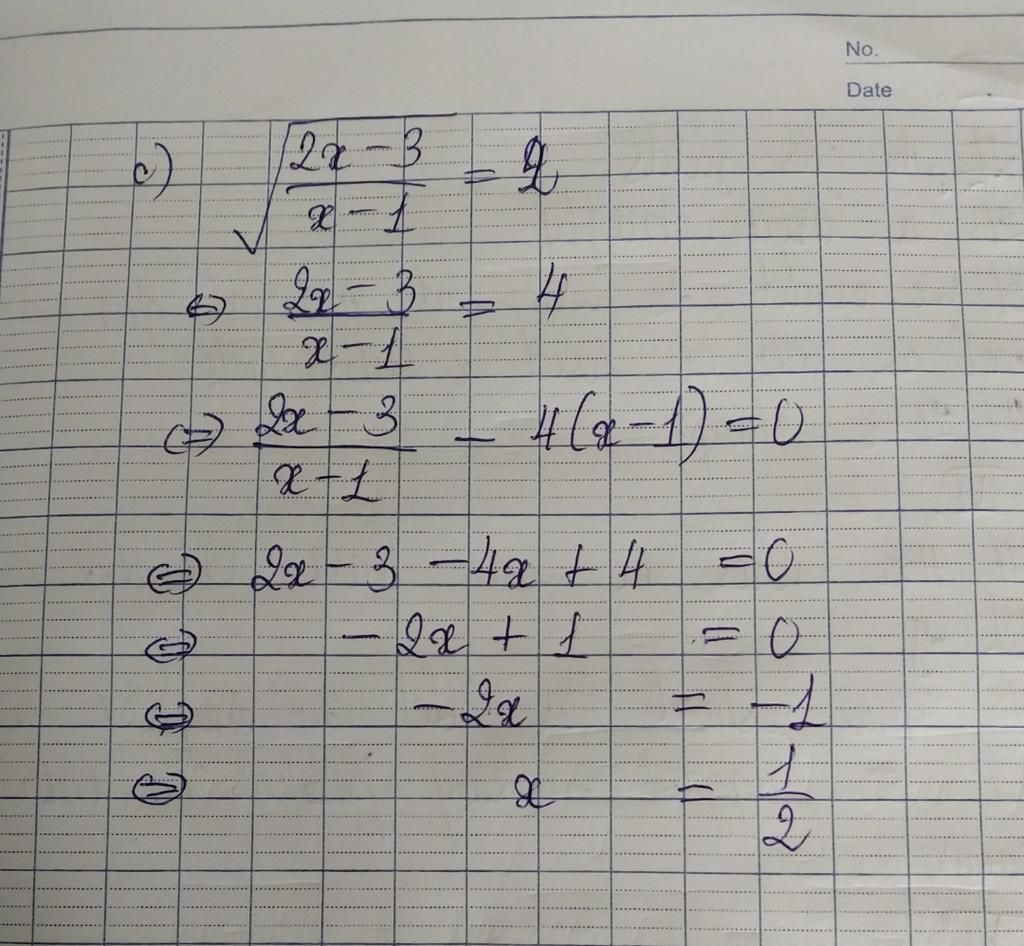 No.
Date
c) √((2x - 3)/(x - 1)) = 2
⇔ (2x - 3)/(x - 1) = 4
⇔ (2x - 3)/(x - 1) - 4(x - 1) = 0
⇔ 2x - 3 - 4x + 4 = 0
⇔ - 2x + 1 = 0
⇔ - 2x = - 1
⇔ x = 1/2